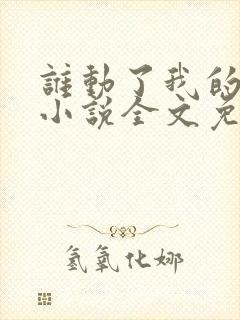 誰動了我的
小說全文免
氢氧化娜